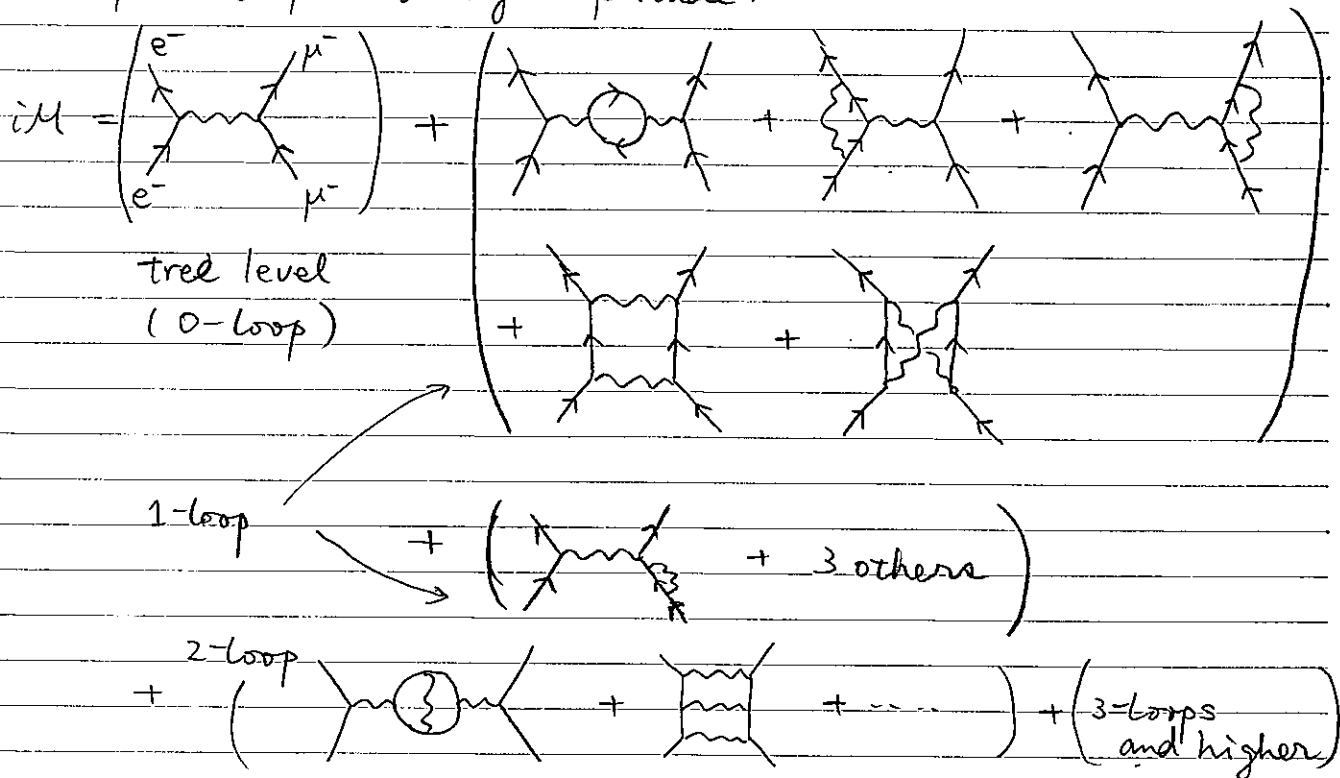 e⁻ μ⁻
iM = + + +
e⁻ μ⁻
tree level
(0-loop) + +
1-loop
+ ( + 3 others )
2-loop
+ ( + + ---- ) + (3-loops
and higher)